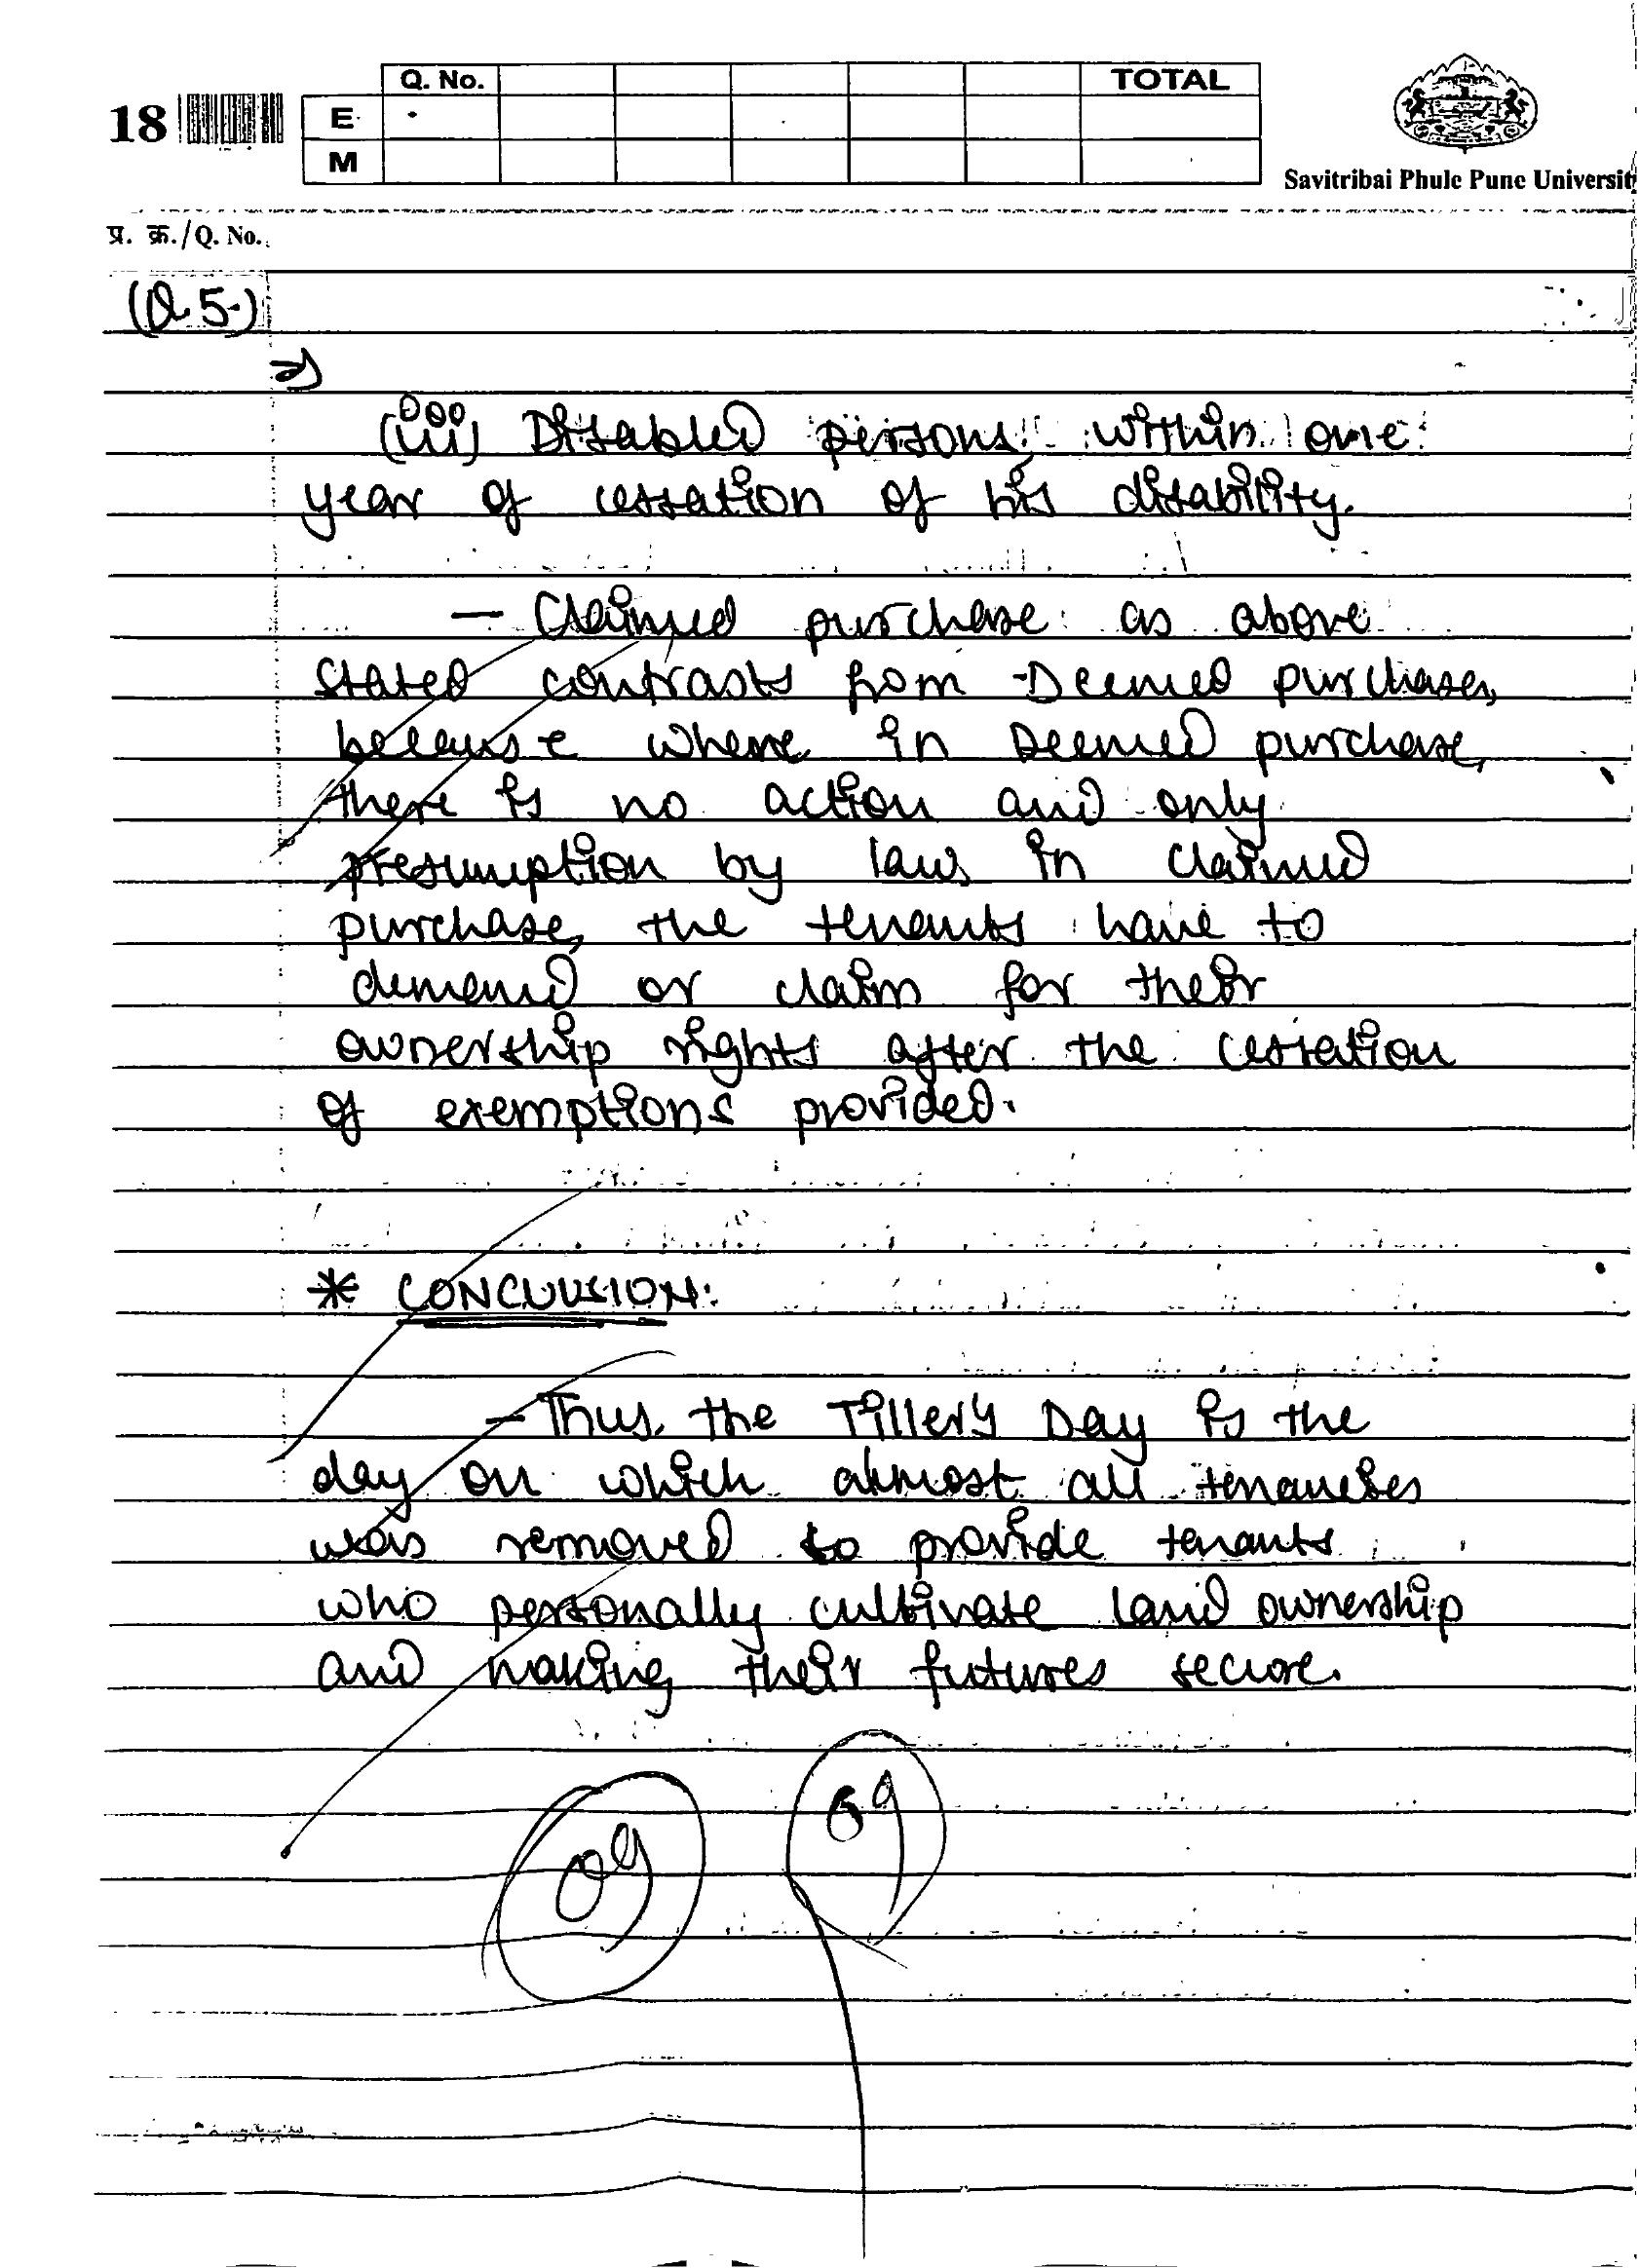 18
Q. No. TOTAL
E
M
Savitribai Phule Pune Universit
प्र. क्र./Q. No.
(Q.5.)
⇒
(iii) Disabled persons, within one
year of cessation of his disability.
- Claimed purchase as above
stated contrasts from Deemed purchase,
because where in Deemed purchase,
there is no action and only
presumption by law, in claimed
purchase, the tenants have to
demand or claim for their
ownership rights after the cessation
of exemptions provided.
* CONCLUSION:
- Thus, the Tiller's Day is the
day on which almost all tenancies
was removed to provide tenants
who personally cultivate land ownership
and making their futures secure.
09
09